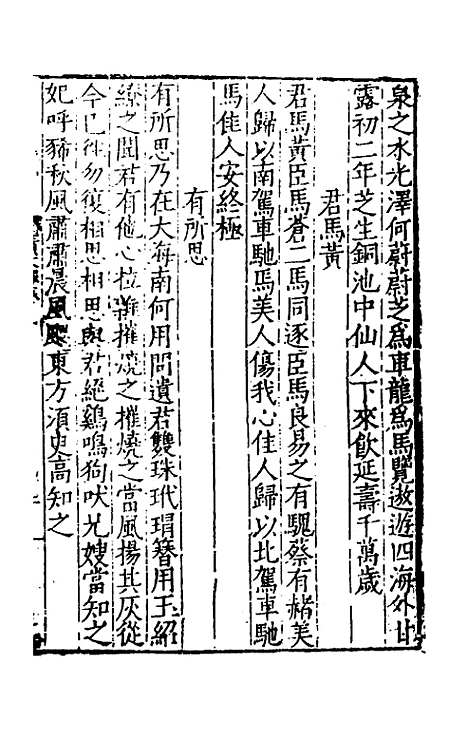 泉之水光澤何蔚蔚芝爲車龍爲馬覽遨遊四海外甘
露初二年芝生銅池中仙人下來飲延壽千萬歲
君馬黃
君馬黃臣馬蒼二馬同逐臣馬良易之有騩蔡有赭美
人歸以南駕車馳馬美人傷我心佳人歸以北駕車馳
馬佳人安終極
有所思
有所思乃在大海南何用問遺君雙珠玳瑁簪用玉紹
繚之聞君有他心拉雜摧燒之摧燒之當風揚其灰從
今已往勿復相思相思與君絕雞鳴狗吠兄嫂當知之
妃呼豨秋風肅肅晨風颸東方須臾高知之